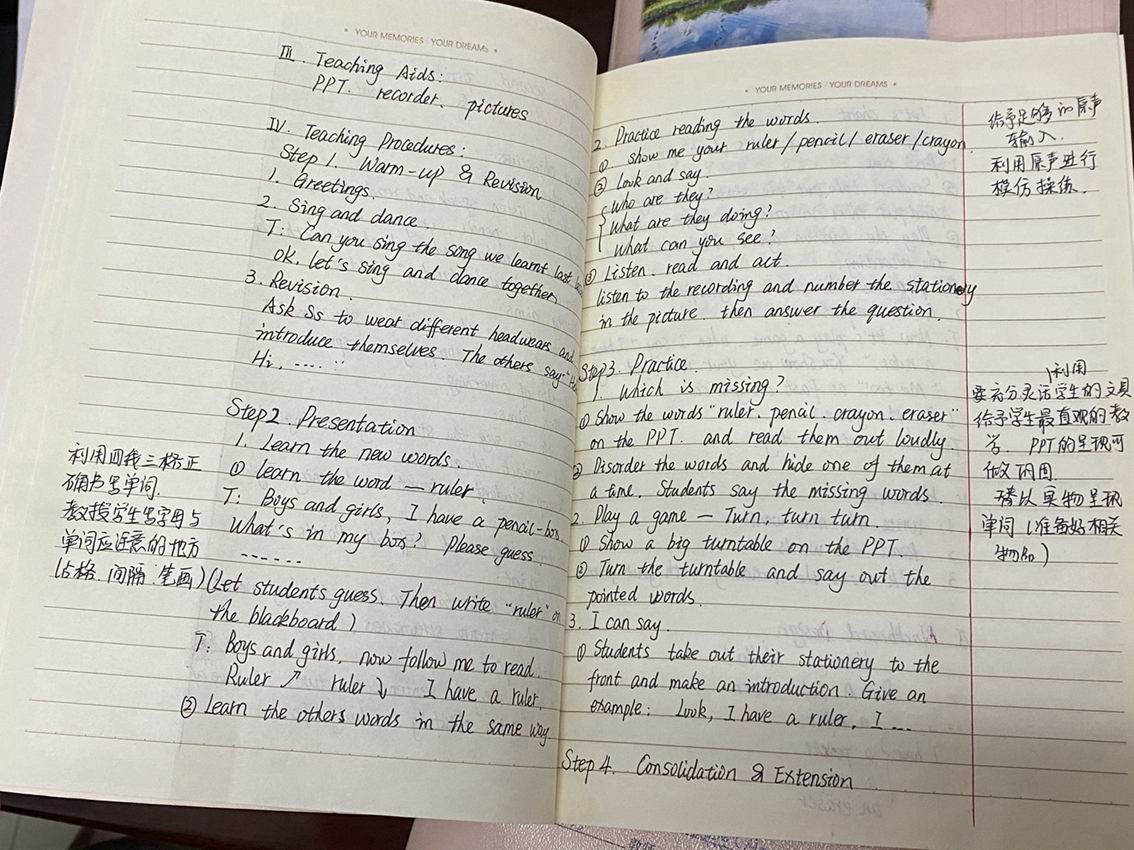 • YOUR MEMORIES YOUR DREAMS •
III. Teaching Aids:
PPT. recorder. pictures
IV. Teaching Procedures:
Step 1. Warm-up & Revision
1. Greetings.
2. Sing and dance.
T: Can you sing the song we learnt last
ok, let's sing and dance together
3. Revision.
Ask Ss to wear different headwears and
introduce themselves. The others say: "Hi
Hi, ....
Step 2. Presentation
1. Learn the new words.
① learn the word — ruler
T: Boys and girls, I have a pencil-box.
What's in my box? Please guess.
-----
(Let students guess. Then write "ruler" on
the blackboard)
T: Boys and girls, now follow me to read.
Ruler ↗ ruler ↘ I have a ruler.
② Learn the others words in the same way.
利用四线三格正
确书写单词.
教授学生写字母与
单词应注意的地方
(占格.间隔.笔画)
• YOUR MEMORIES YOUR DREAMS •
2. Practice reading the words.
① show me your ruler / pencil / eraser / crayon
② Look and say.
Who are they?
What are they doing?
What can you see?
③ Listen. read and act.
listen to the recording and number the stationery
in the picture. then answer the question.
Step 3. Practice.
1. Which is missing?
① Show the words "ruler. pencil. crayon. eraser"
on the PPT. and read them out loudly.
② Disorder the words and hide one of them at
a time. Students say the missing words.
2. Play a game — Turn, turn turn.
① Show a big turntable on the PPT.
② Turn the turntable and say out the
pointed words.
3. I can say.
① Students take out their stationery to the
front and make an introduction. Give an
example: Look, I have a ruler, I ...
Step 4. Consolidation & Extension
给予足够的原声
输入.
利用原声进行
模仿操练.
利用
要充分灵活学生的文具
给予学生最直观的教
学. PPT的呈现可
做巩固
请以实物呈现
单词(准备好相关
物品)